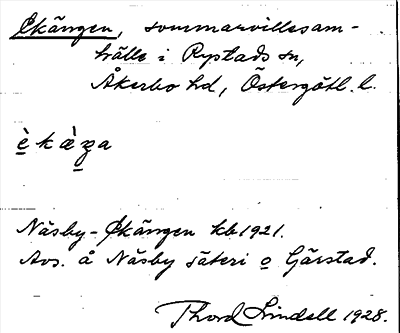 Ekängen, sommarvillesam-
hälle i Rystads sn,
Åkerbo hd, Östergötl. l.
è k æ̀ ŋa
Näsby-Ekängen kb 1921.
Avs. å Näsby säteri o Gärstad.
Thord Lindell 1928.